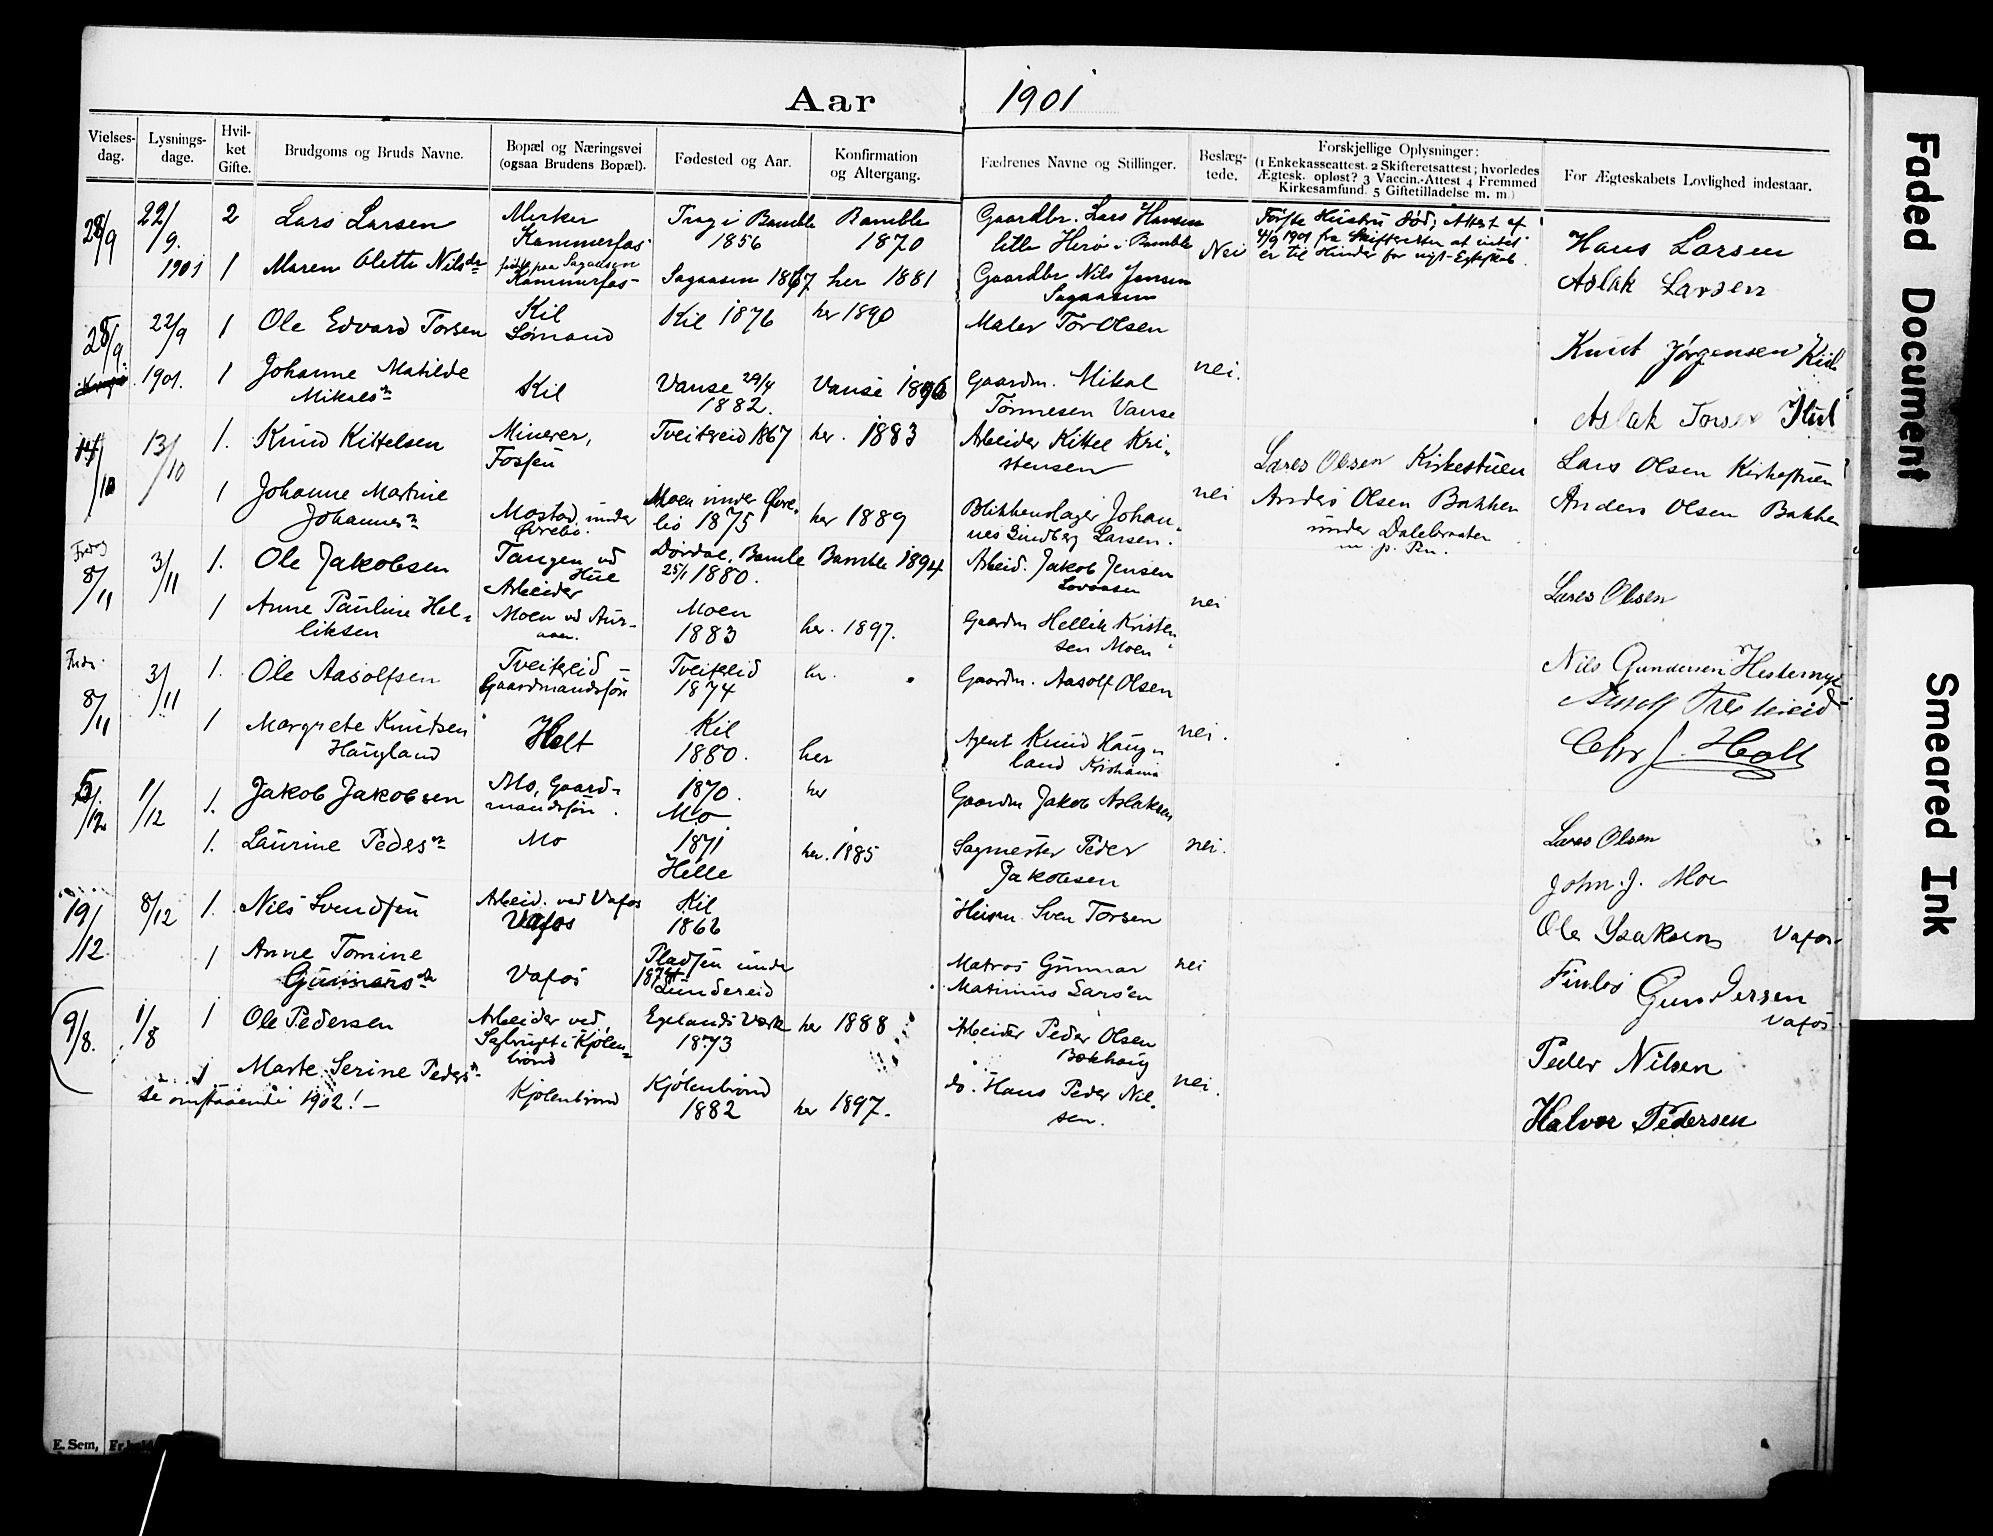 Aar 1901
Vielses-
dag.
Lysnings-
dage.
Hvil-
ket
Gifte.
Brudgoms og Bruds Navne.
Bopæl og Næringsvei
(ogsaa Brudens Bopæl).
Fødested og Aar.
Konfirmation
og Altergang.
Fædrenes Navne og Stillinger.
Beslæg-
tede.
Forskjellige Oplysninger:
(1 Enkekasseattest. 2 Skifteretsattest; hvorledes
Ægtesk. opløst? 3 Vaccin.-Attest 4 Fremmed
Kirkesamfund. 5 Giftetilladelse m. m.)
For Ægteskabets Lovlighed indestaar.
28/9
22/9.
1901
2
Lars Larsen
Kammerfos
Trag i Bamble
1856
Bamble
1870
Gaardbr. Lars Hansen
lille Herø i Bamble
Nei
Første Hustru død; Attest af
4/9 1901 fra Skifteretten at intet
er til Hinder for nyt Egteskab.
Hans Larsen
1
Maren Olette Nilsdr
født paa Sagaasen
Kammerfos
Sagaasen 1867
her 1881
Gaardbr Nils Jensen
Sagaasen
Aslak Larsen
28/9
22/9
1901.
1
Ole Edvard Torsen
Kil
Sømand
Kil 1876
her 1890
Maler Tor Olsen
Knut Jørgensen Kiil
1
Johanne Matilde
Mikalsdr
Kil
Vanse 29/4
1882.
Vanse 1896
Gaardm. Mikal
Tønnesen Vanse
nei.
Aslak Torsen
14/10
13/10
1.
Knud Kittelsen
Minerer,
Fossen
Tveitereid 1867
her. 1883
Arbeider Kittel Kri-
stensen
Lares Olsen Kirkestuen
Lars Olsen Kirkestuen
1
Johanne Martine
Johannesdr
Mostad under
Øvrebø.
Moen under Øvre-
bø 1875
her 1889
Blikkenslager Johan-
nes Lindberg Larsen.
nei
Anders Olsen Bakken
under Dalebraaten
m. p. Pen.
Anders Olsen Bakken
Fredag
8/11
3/11
1.
Ole Jakobsen
Tangen vd
Hull
Arbeider
Dørdal, Bamle
25/1 1880.
Bamble 1894
Arbeid. Jakob Jensen
Lovaasen
Lares Olsen
1
Anne Pauline Hel-
liksen
Moen vd Aur-
aaen.
Moen
1883
her. 1897.
Gaardm Hellik Kristen
sen Moen
nei
Fredr.
8/11
3/11
1.
Ole Aasolfsen
Tveitereid –
Gaardmandssøn
Tveitereid
1874
her.
Gaardm. Aasolf Olsen
Nils Gundersen
1
Margrete Knutsen
Haugland
Holt
Kil
1880.
her
Agent Knud Haug-
land Kristiania
nei.
Chr J. Holt
5/12
1/12
1.
Jakob Jakobsen
Mo, Gaard-
mandssøn.
1870.
Mo
her
Gaardm Jakob Aslaksen
Lares Olsen
1.
Laurine Pedersdr
Mo
1871
Helle
her. 1885
Sagmester Peder
Jakobsen
nei.
John. J. Moe
19/12
8/12
1.
Nils Svendsen
Arbeid. ved Vafos
Vafos
Kil
1862
Husm. Sven Torsen
Ole Ysaksen Vafos.
1
Anne Tomine
Gunnarsdr
Vafos
Pladsen under
1874
Lundereid
Matros Gunnar
Matinius Larsen
nei
Gundersen
Vafos
9/8.
1/8
1
Ole Pedersen
Arbeider ved
Sagbruget i Kjølen-
brønd
Egelands Værk
1873
her 1888
Arbeider Peder Olsen
Bakhaug
Peder Nilsen
1
Marte Serine Pedersdr
Kjølenbrønd
Kjølenbrønd
1882
her 1897.
do. Hans Peder Nil-
sen.
nei.
Halvor Pedersen
se omstaaende 1902! –
E. Sem,
Faded Document
Smeared Ink